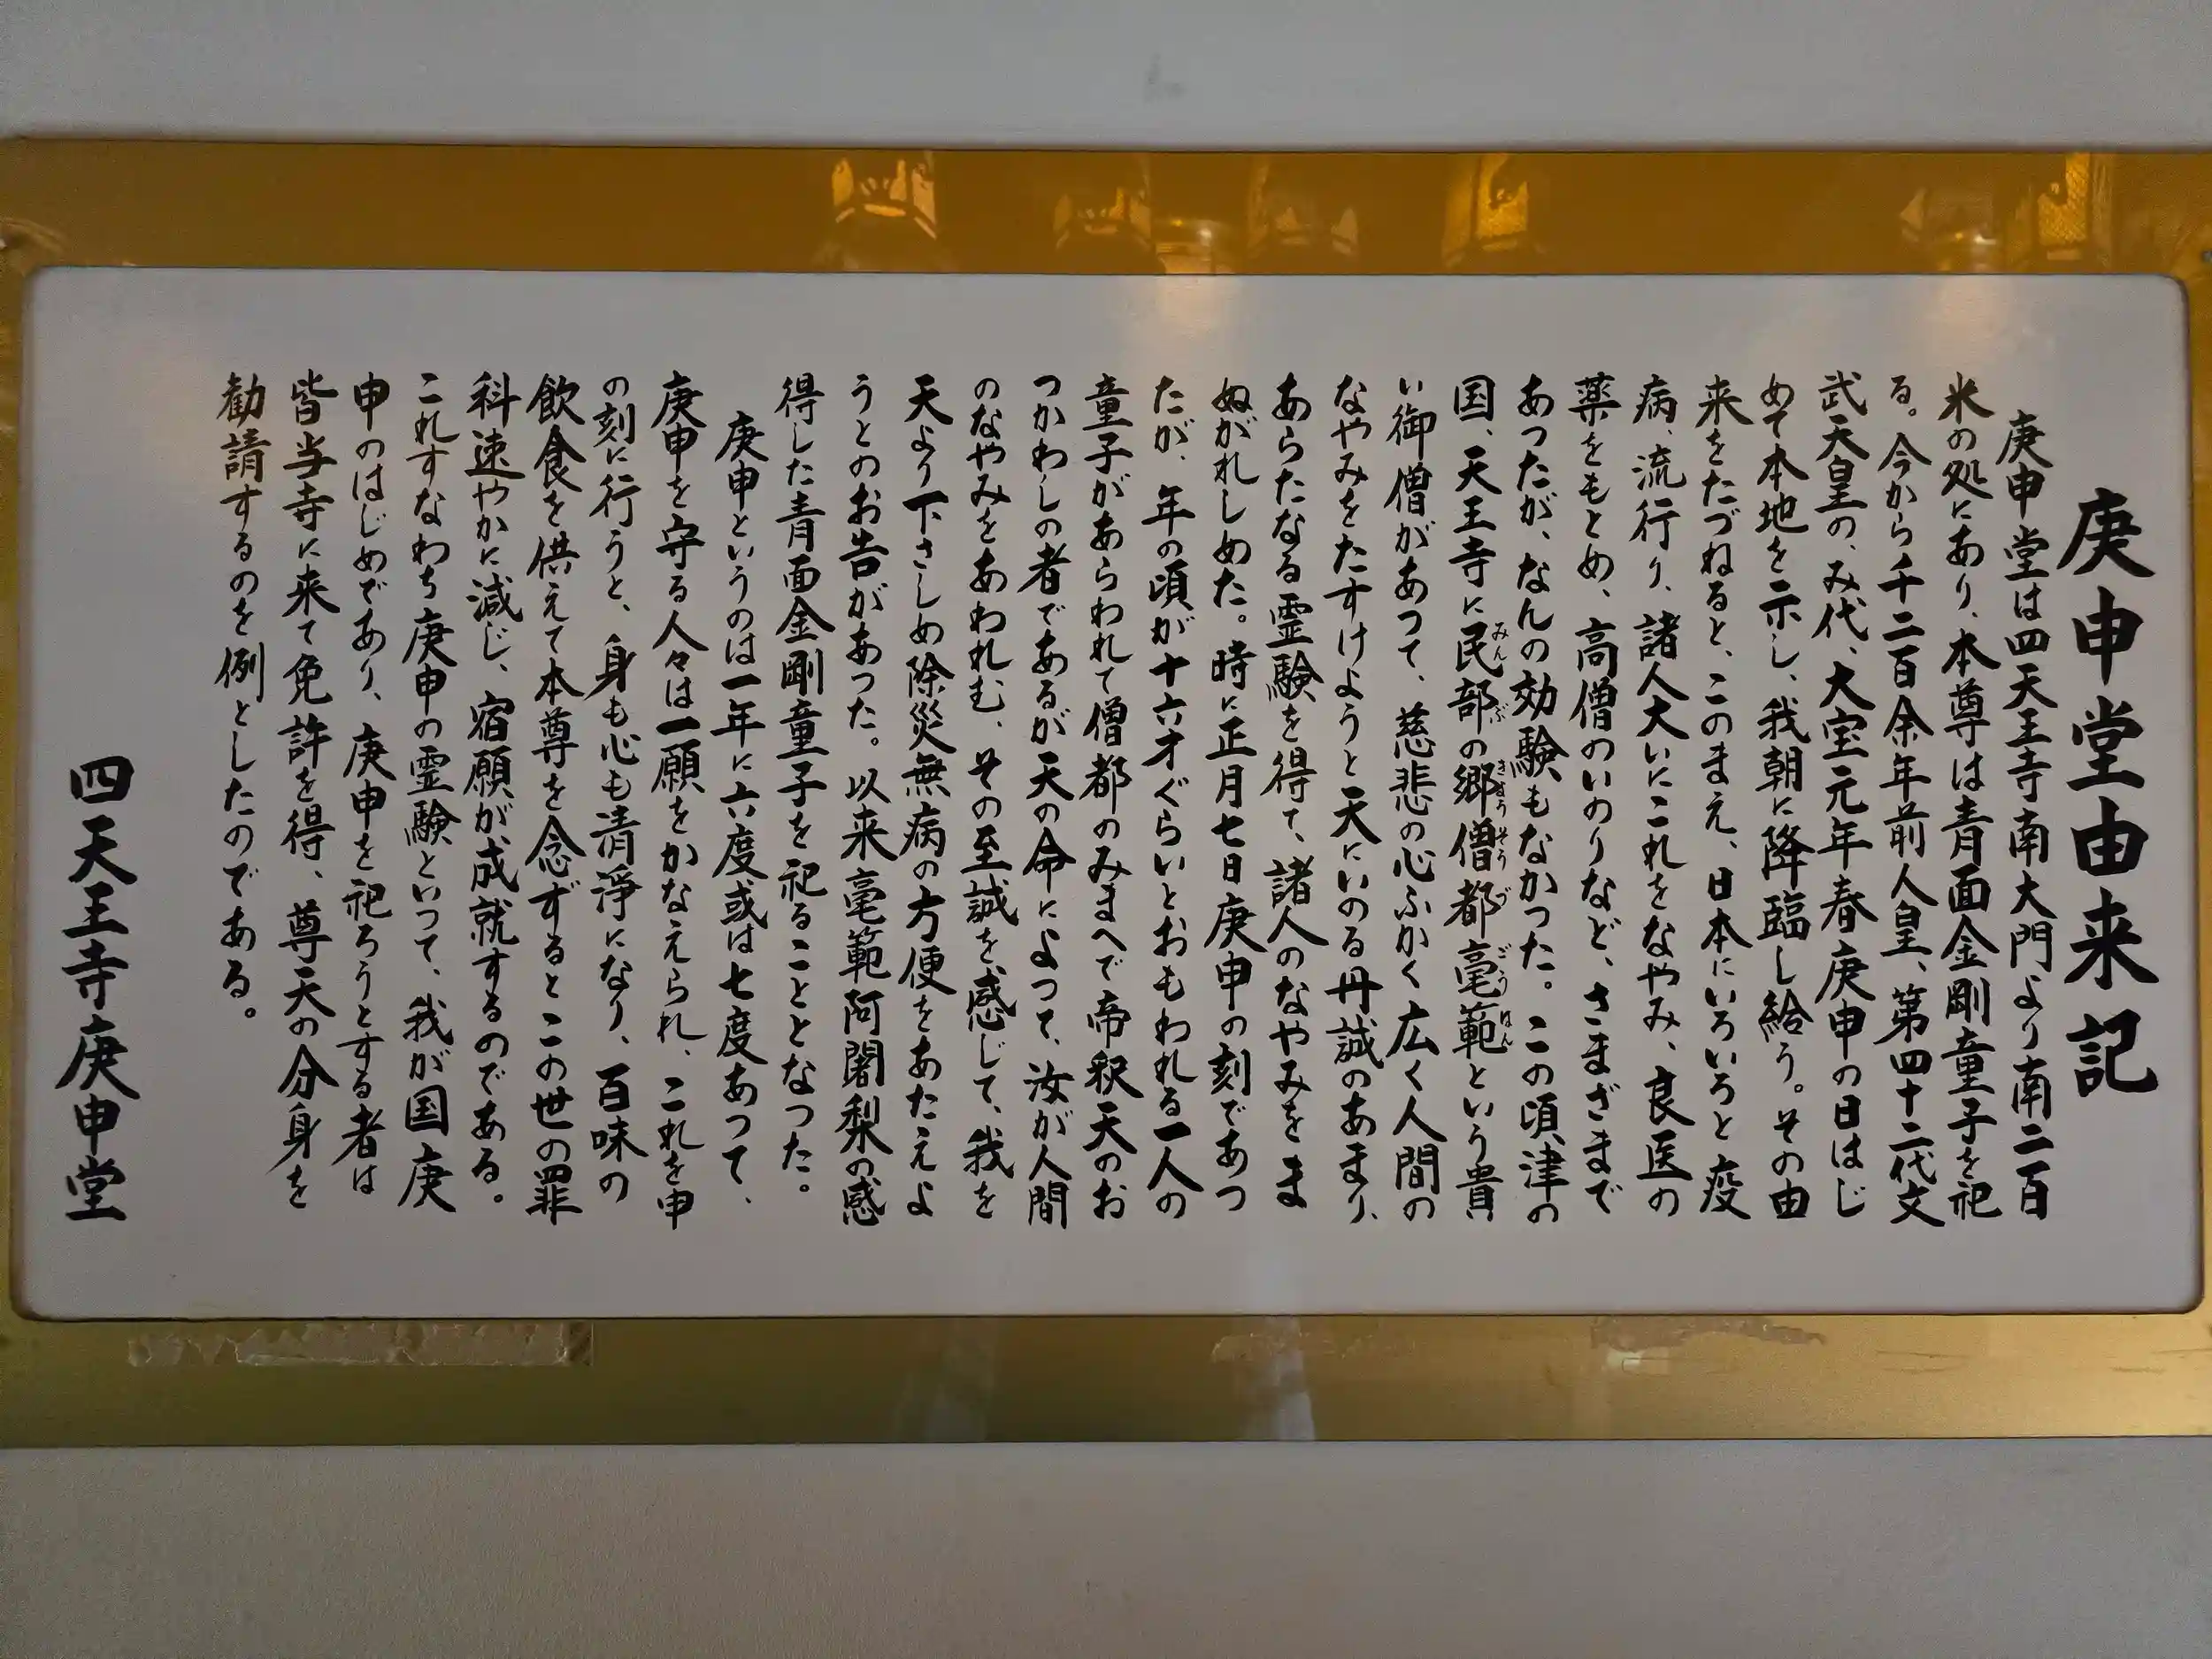 庚申堂由来記
庚申堂は四天王寺南大門より南二百
米の処にあり、本尊は青面金剛童子を祀
る。今から千二百余年前人皇、第四十二代文
武天皇の、み代、大宝元年春庚申の日はじ
めて本地を示し、我朝に降臨し給う。その由
来をたづねると、このまえ、日本にいろいろと疫
病、流行り、諸人大いにこれをなやみ、良医の
薬をもとめ、高僧のいのりなど、さまざまで
あつたが、なんの効験もなかつた。この頃津の
国、天王寺に民部の郷僧都毫範という貴
みんぶ きようそうづ ごうはん
い御僧があつて、慈悲の心ふかく広く人間の
なやみをたすけようと天にいのる丹誠のあまり、
あらたなる霊験を得て、諸人のなやみをま
ぬがれしめた。時に正月七日庚申の刻であつ
たが、年の頃が十六才ぐらいとおもわれる一人の
童子があらわれて僧都のみまへで帝釈天のお
つかわしの者であるが天の命によつて、汝が人間
のなやみをあわれむ、その至誠を感じて、我を
天より下さしめ除災無病の方便をあたえよ
うとのお告があつた。以来毫範阿闍梨の感
得した青面金剛童子を祀ることとなつた。
庚申というのは一年に六度或は七度あつて、
庚申を守る人々は一願をかなえられ、これを申
の刻に行うと、身も心も清浄になり、百味の
飲食を供えて本尊を念ずるとこの世の罪
科速やかに減じ、宿願が成就するのである。
これすなわち庚申の霊験といつて、我が国庚
申のはじめであり、庚申を祀ろうとする者は
皆当寺に来て免許を得、尊天の分身を
勧請するのを例としたのである。
四天王寺庚申堂